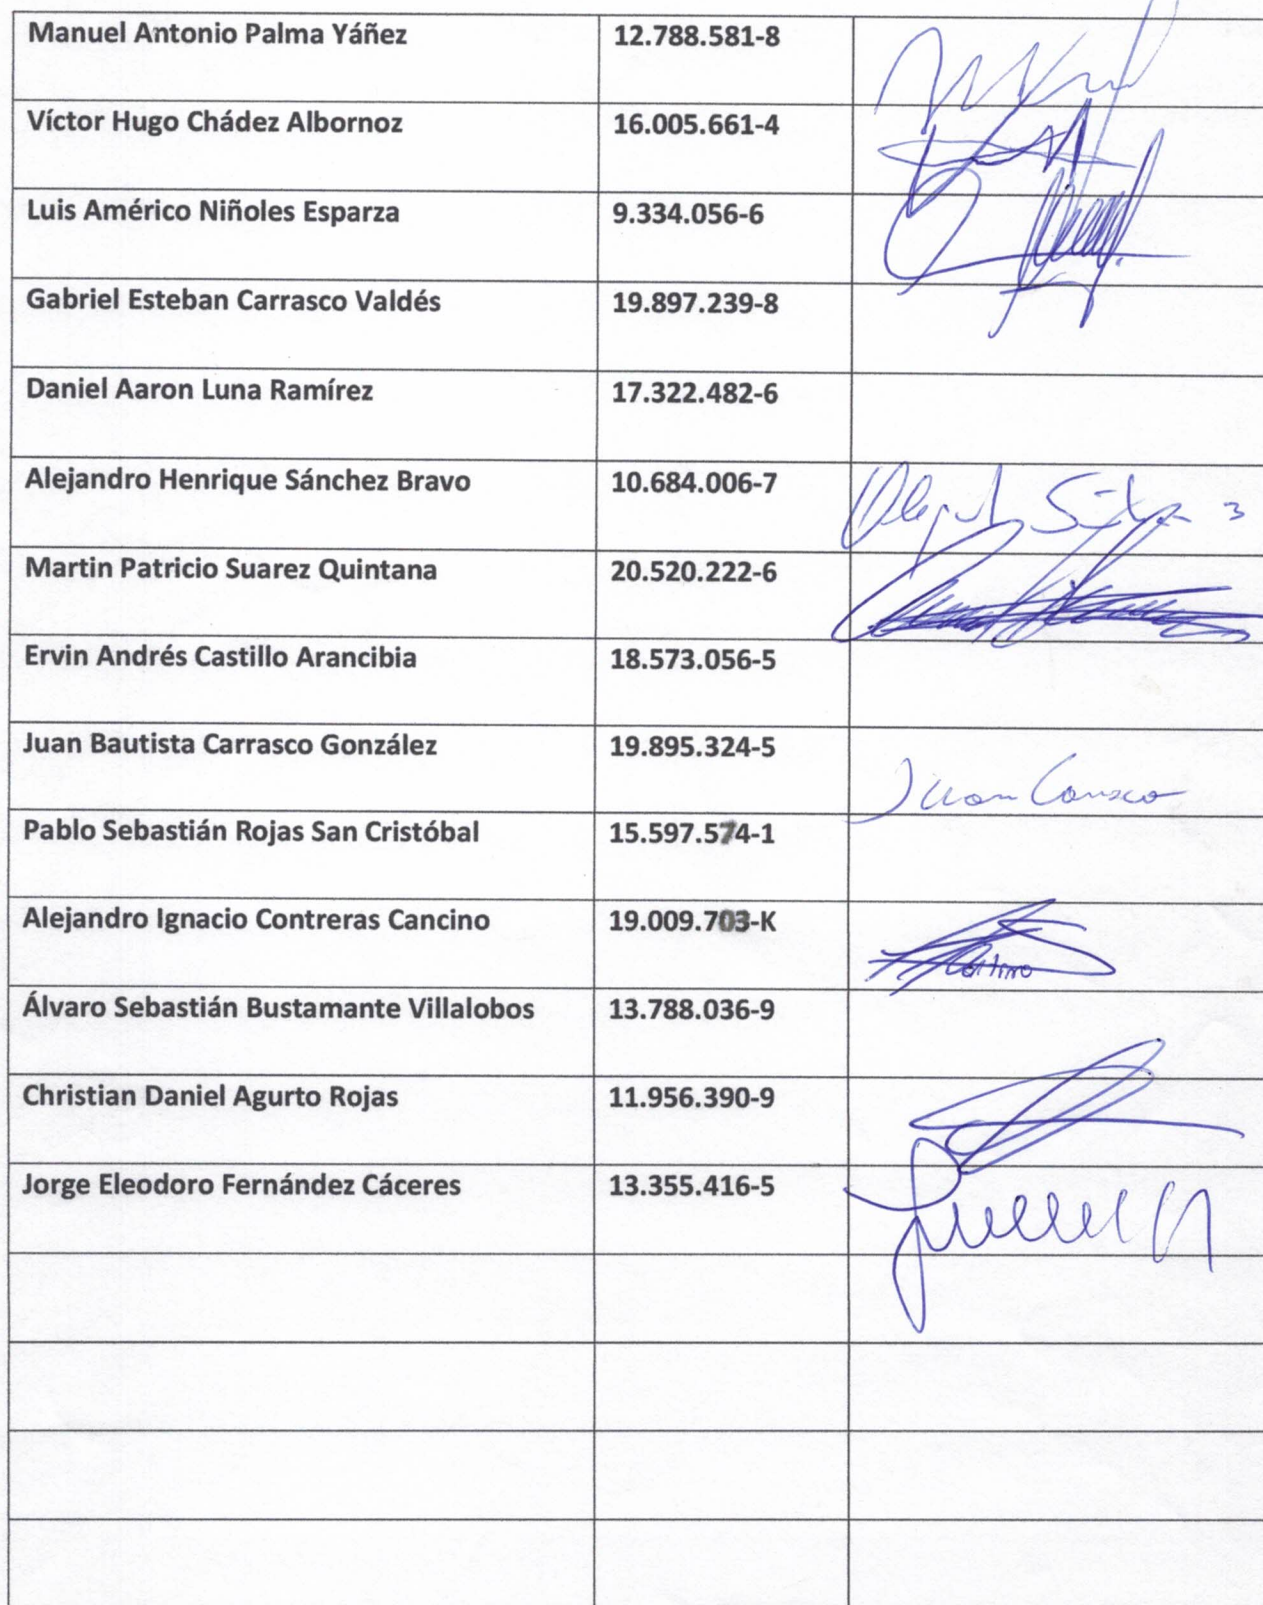 Manuel Antonio Palma Yáñez 12.788.581-8
Víctor Hugo Chádez Albornoz 16.005.661-4
Luis Américo Niñoles Esparza 9.334.056-6
Gabriel Esteban Carrasco Valdés 19.897.239-8
Daniel Aaron Luna Ramírez 17.322.482-6
Alejandro Henrique Sánchez Bravo 10.684.006-7
Martin Patricio Suarez Quintana 20.520.222-6
Ervin Andrés Castillo Arancibia 18.573.056-5
Juan Bautista Carrasco González 19.895.324-5
Juan Carrasco
Pablo Sebastián Rojas San Cristóbal 15.597.574-1
Alejandro Ignacio Contreras Cancino 19.009.703-K
Álvaro Sebastián Bustamante Villalobos 13.788.036-9
Christian Daniel Agurto Rojas 11.956.390-9
Jorge Eleodoro Fernández Cáceres 13.355.416-5